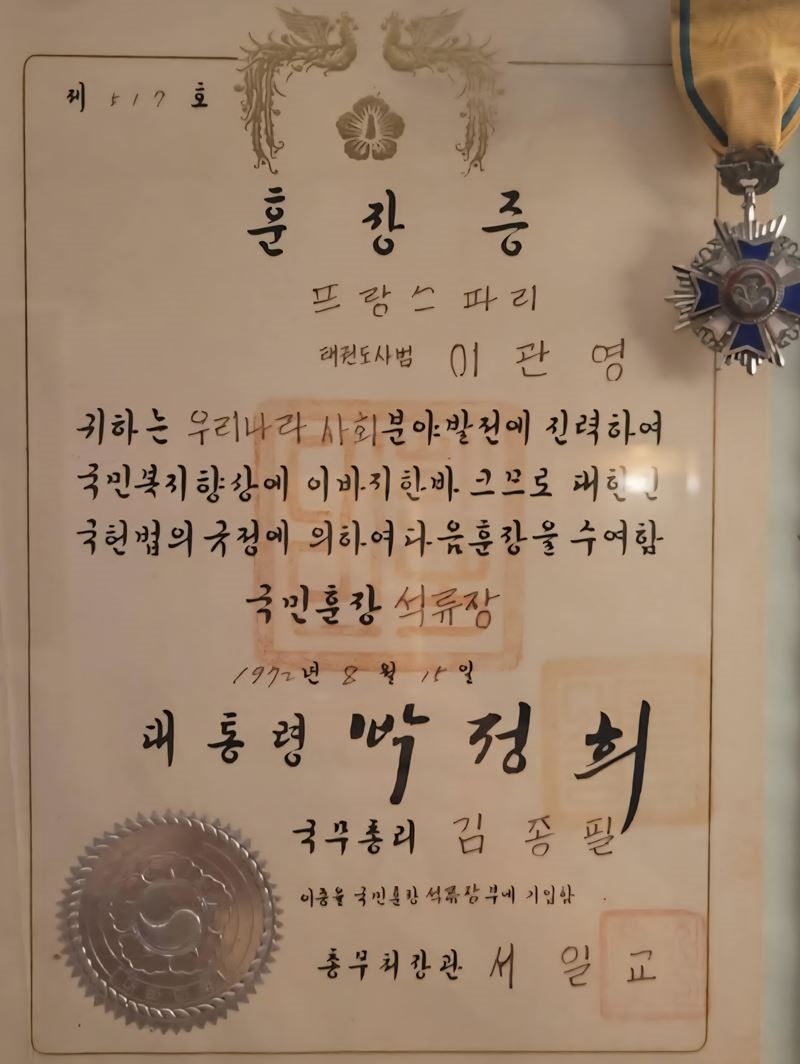 제 517 호
훈장증
프랑스파리
태권도사범 이관영
귀하는 우리나라 사회분야발전에 진력하여
국민복지향상에 이바지한바 크므로 대한민
국헌법의 규정에 의하여 다음훈장을 수여함
국민훈장 석류장
1972년 8월 15일
대통령 박정희
국무총리 김종필
이증을 국민훈장 석류장부에 기입함
총무처장관 서일교